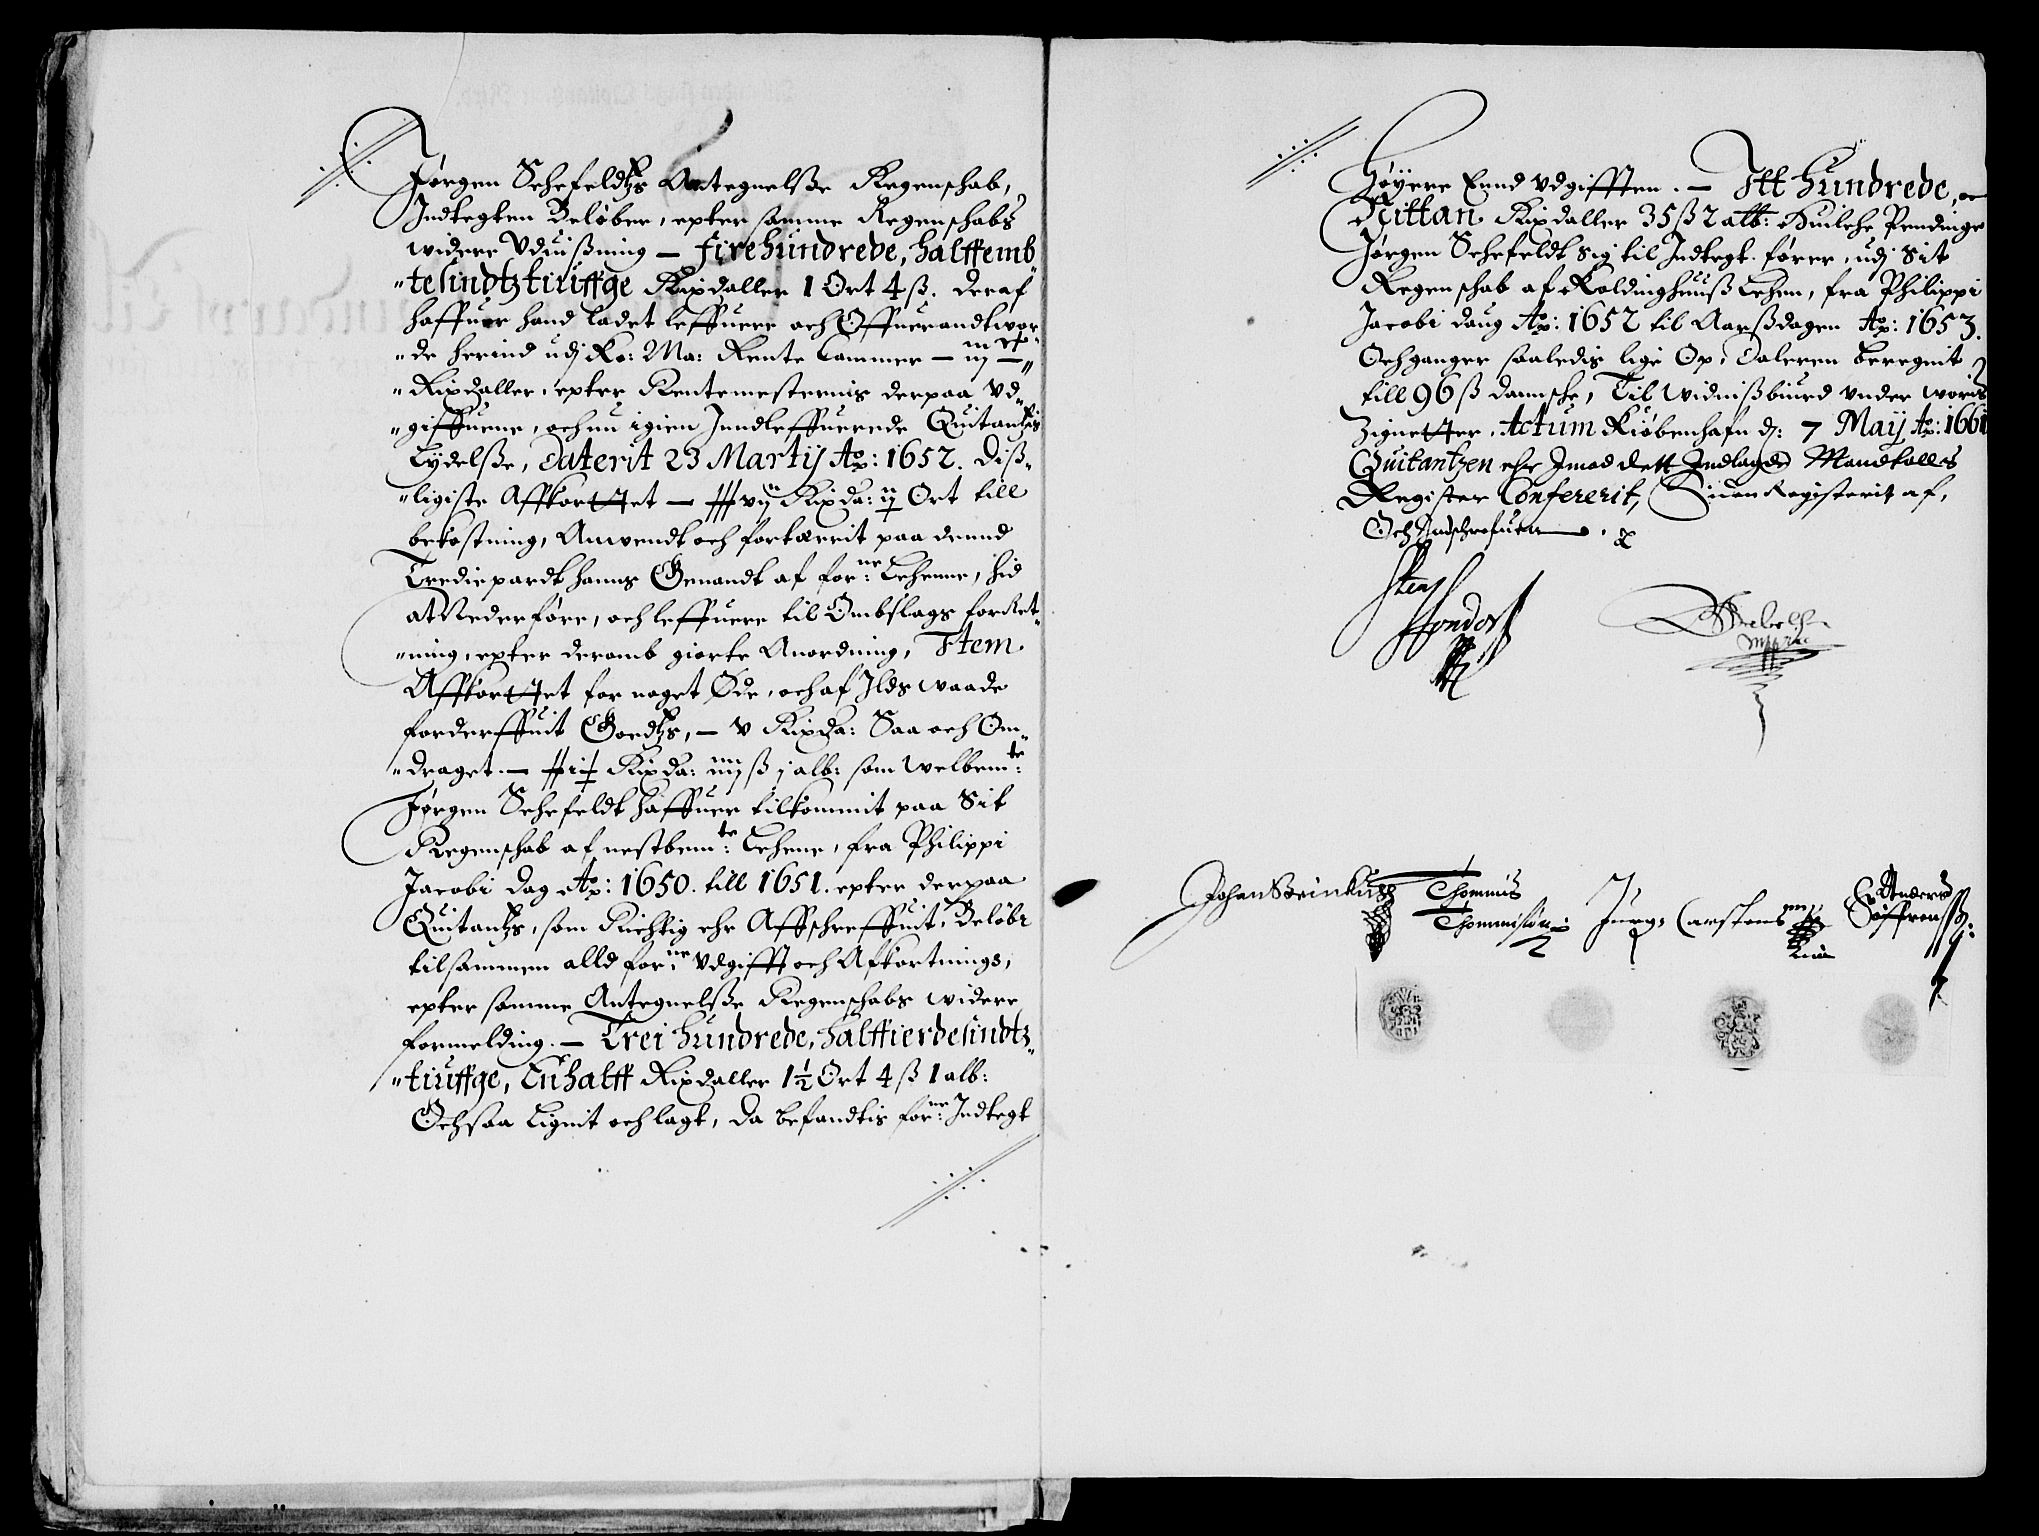 Jørgen Sehefeldtz Antegnelsse Regenschab,
Indtegten Beløber, epter samme Regenschabs
widere Vduißning — fire hundrede, halffemb
"tesindtztiuffge Rixdaller 1 Ort 4 ß. deraf
haffuer hand ladet leffuere och Offuerandtvor-
"de herind udj Ko: Ma: Rente Cammer —
"Rixdaller, epter Rentemesternis derpaa Vd-
"giffuene, och nu igien Inndleffuerede Quitantzis
Lydelsse, Daterit 23 Martij Ao: 1652. Diß-
"ligiste Affkortet — Rixda: Ort till
bekostning, Anwendt och fortærrit paa dennd
Trediepardt hanns Genandt af forne: Lehenne, hid
at Nederføre, och leffuere til Ombslags forRet-
"ning, epter deromb giorte Anordning, Item
Affkortet for noget Øde, och af Ilds waade
forderffuit Goedtz, — v Rixda: Saa och Om-
"draget — Rixda: iiij ß j alb: som Welbemte:
Jørgen Sehefeldt haffuer tilkommit paa Sit
Regenschab af nestbemte: Lehene, fra Philippi
Jacobi dag Ao: 1650. till 1651. epter derpaa
Quitantz, som Richtig ehr Affschreffuit, Beløbr
tilsammen alld forne: Vdgifft och Afkortnings,
epter samme Antegnelsse Regenschabs widere
formelding. — Trei hundrede, halffierdesindtz-
"tiuffge, Tuhalff Rixdaller 1½ Ort 4 ß 1 alb:
Och saa Lignit och lagt, da befandtis forne: Indtegt
Høyere Ennd Vdgifften. — Itt hundrede, oc
Nittan Rixdaller 35 ß 2 alb: Huilche Pendinge
Jørgen Sehefeldt sig til Indtegt fører, udj Sit
Regenschab af Koldinghuuß Lehen, fra Philippi
Jacobi daug Ao: 1652 til Aarßdagen Ao: 1653.
Och ganger saaledis lige Op, Daleren beregnit
till 96 ß dannsche, Til Widnißbiurd vnder woris
Zignetter. Actum Kiøbenhafn d: 7 Maij Ao: 1661
Quitantzen ehr Imod dett Indlagde Mandtalls
Register Confererit, Siden Registerit af,
Och Indschrefuen
Sten
Hondorff
Johan Steinkuhl Thommis Jurg: Carstens Anders
Thommissøn Søffrenß: